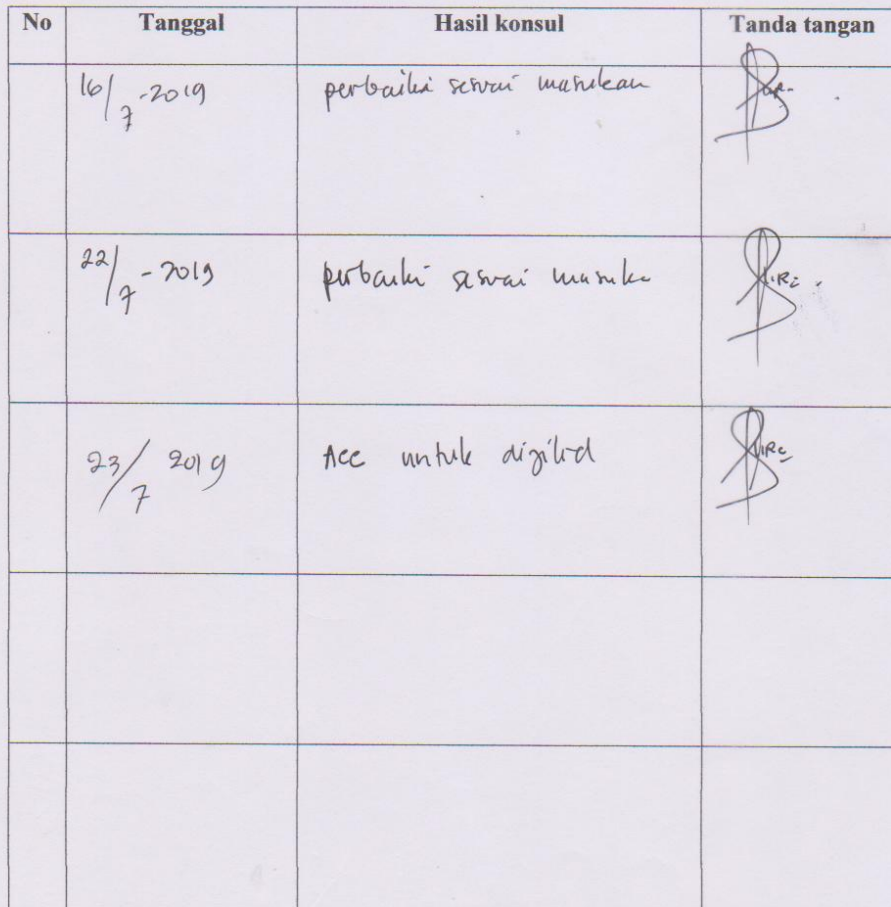 No Tanggal Hasil konsul Tanda tangan
16/7-2019 perbaiki sesuai masukan
22/7-2019 perbaiki sesuai masuka
23/7 2019 Acc untuk dijilid